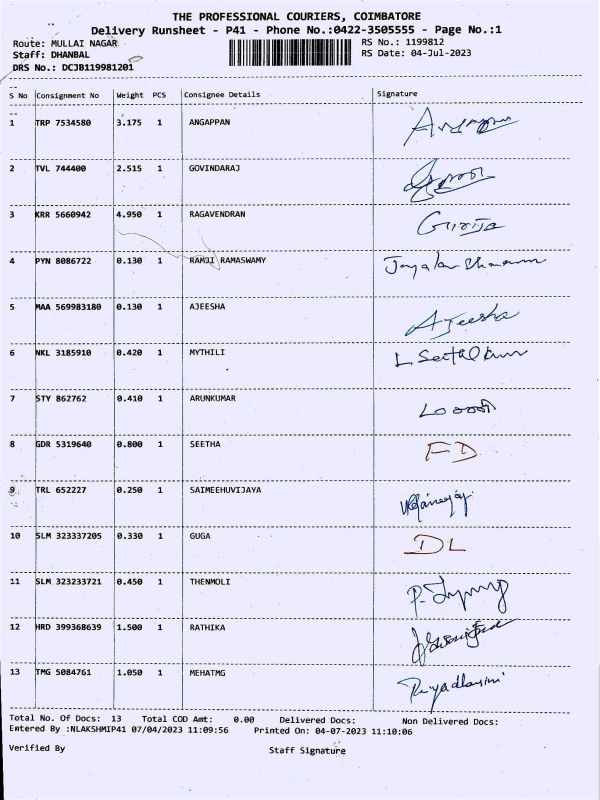 THE PROFESSIONAL COURIERS, COIMBATORE
Delivery Runsheet - P41 - Phone No.:0422-3505555 - Page No.:1
Route: MULLAI NAGAR RS No.: 1199812
Staff: DHANBAL RS Date: 04-Jul-2023
DRS No.: DCJB119981201
S No Consignment No Weight PCS Consignee Details Signature
1 TRP 7534580 3.175 1 ANGAPPAN
2 TVL 744400 2.515 1 GOVINDARAJ
3 KRR 5660942 4.950 1 RAGAVENDRAN Girija
4 PYN 8086722 0.130 1 RAMJI RAMASWAMY
5 MAA 569983180 0.130 1 AJEESHA Ajeesha
6 NKL 3185910 0.420 1 MYTHILI
7 STY 862762 0.410 1 ARUNKUMAR
8 GDR 5319640 0.800 1 SEETHA FD
9 TRL 652227 0.250 1 SAIMEEHUVIJAYA
10 SLM 323337205 0.330 1 GUGA DL
11 SLM 323233721 0.450 1 THENMOLI
12 HRD 399368639 1.500 1 RATHIKA
13 TMG 5084761 1.050 1 MEHATMG Priyadharsini
Total No. Of Docs: 13 Total COD Amt: 0.00 Delivered Docs: Non Delivered Docs:
Entered By :NLAKSHMIP41 07/04/2023 11:09:56 Printed On: 04-07-2023 11:10:06
Verified By Staff Signature